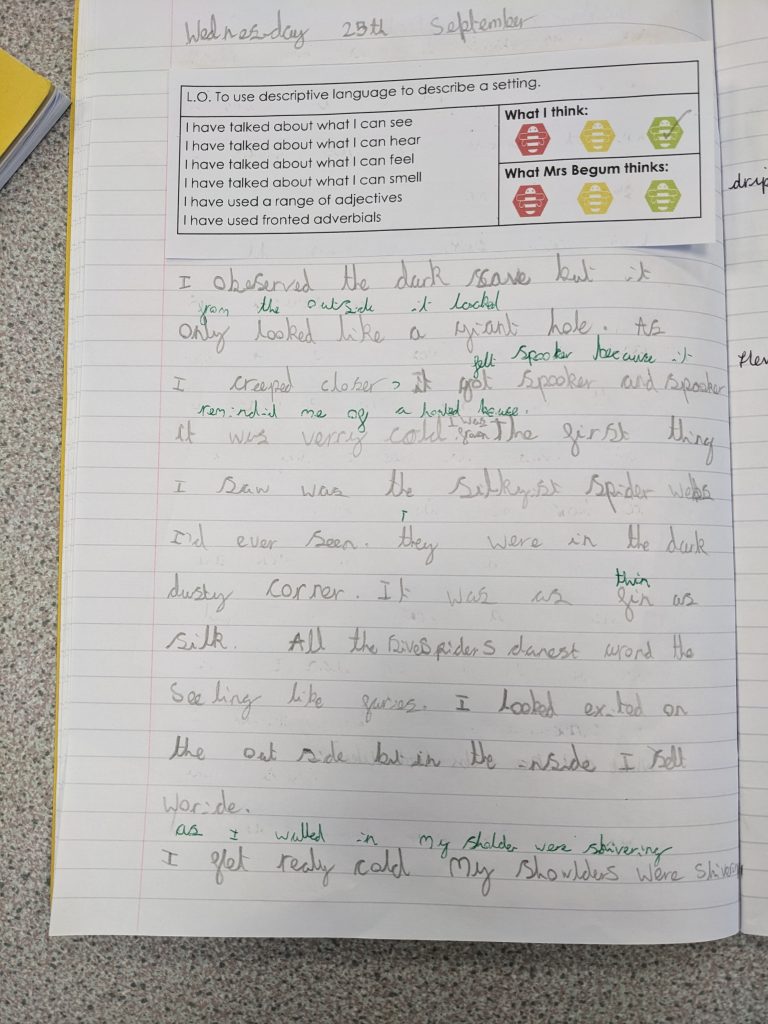 Wednesday 25th September
L.O. To use descriptive language to describe a setting.
I have talked about what I can see
I have talked about what I can hear
I have talked about what I can feel
I have talked about what I can smell
I have used a range of adjectives
I have used fronted adverbials
What I think:
What Mrs Begum thinks:
drip
I observed the dark cave but it
from the outside it looked
only looked like a giant hole. As
felt spooker because it
Her
I creeped closer, it got spooker and spooker
remindid me of a honted house.
it was verry cold I was The first thing
I saw was the silkyist spider webs
I'd ever seen. they were in the dark
T
thin
dusty corner. It was as fin as
silk. All the five spiders danest arond the
seeling like faries. I looked exited on
the out side but in the inside I felt
woride.
as I walked in my sholder were shivering
I felt realy cold My shoulders were